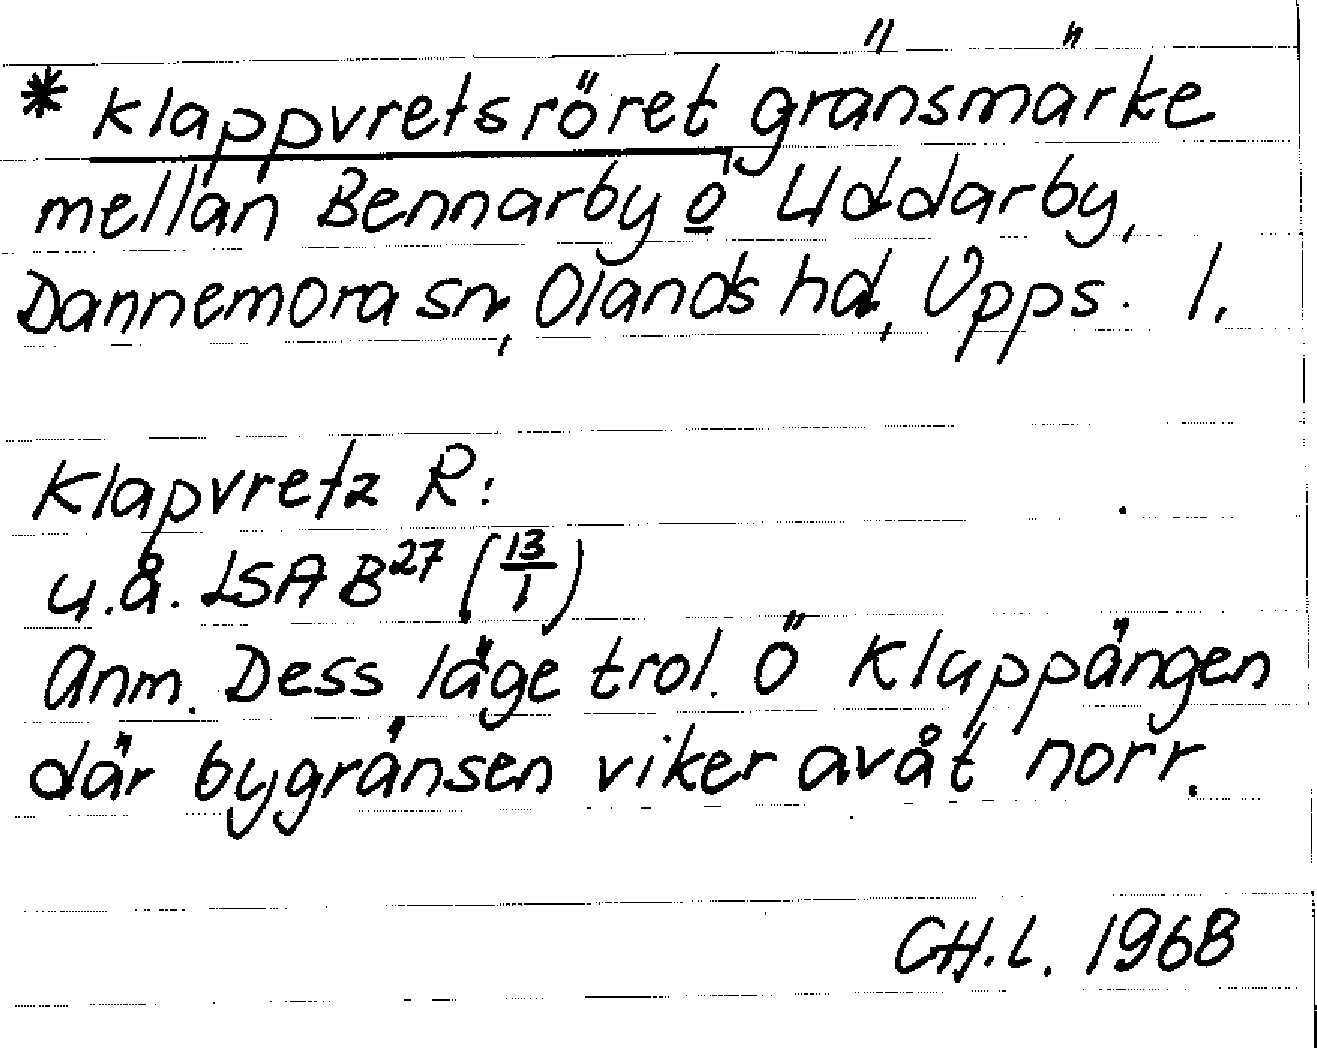 * Klappvretsröret, gränsmärke
mellan Bennarby o Uddarby,
Dannemora sn, Olands hd, Upps. l.
Klapvretz R:
u.å. LSA B27 (13/1)
Anm. Dess läge trol. Ö Klappängen
där bygränsen viker avåt norr.
CH.L. 1968